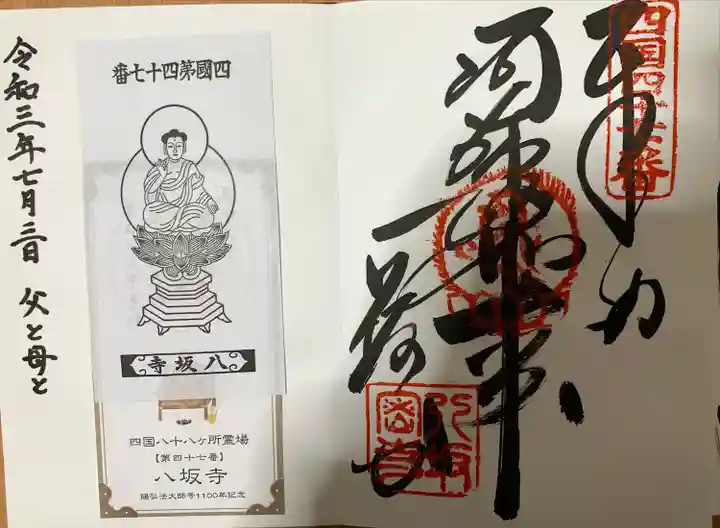 奉納
四国四十七番
阿弥陀如来
八坂寺
四國第四十七番
八坂寺
四国八十八ヶ所霊場
【第四十七番】
八坂寺
賜弘法大師号1100年記念
令和三年七月三日 父と母と